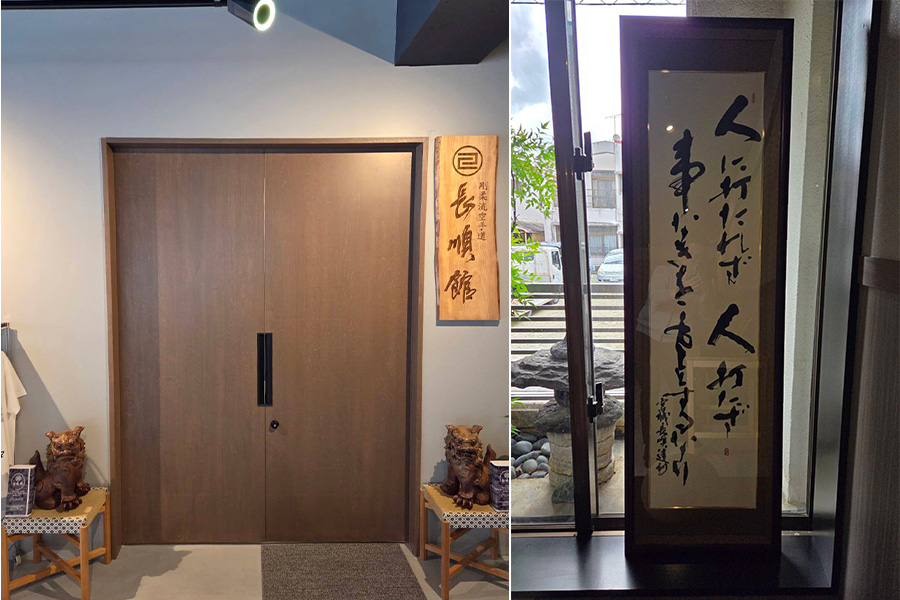 剛柔流空手道
長順館
人に打たれず 人打たず
事なきを基とするなり
宮城長順